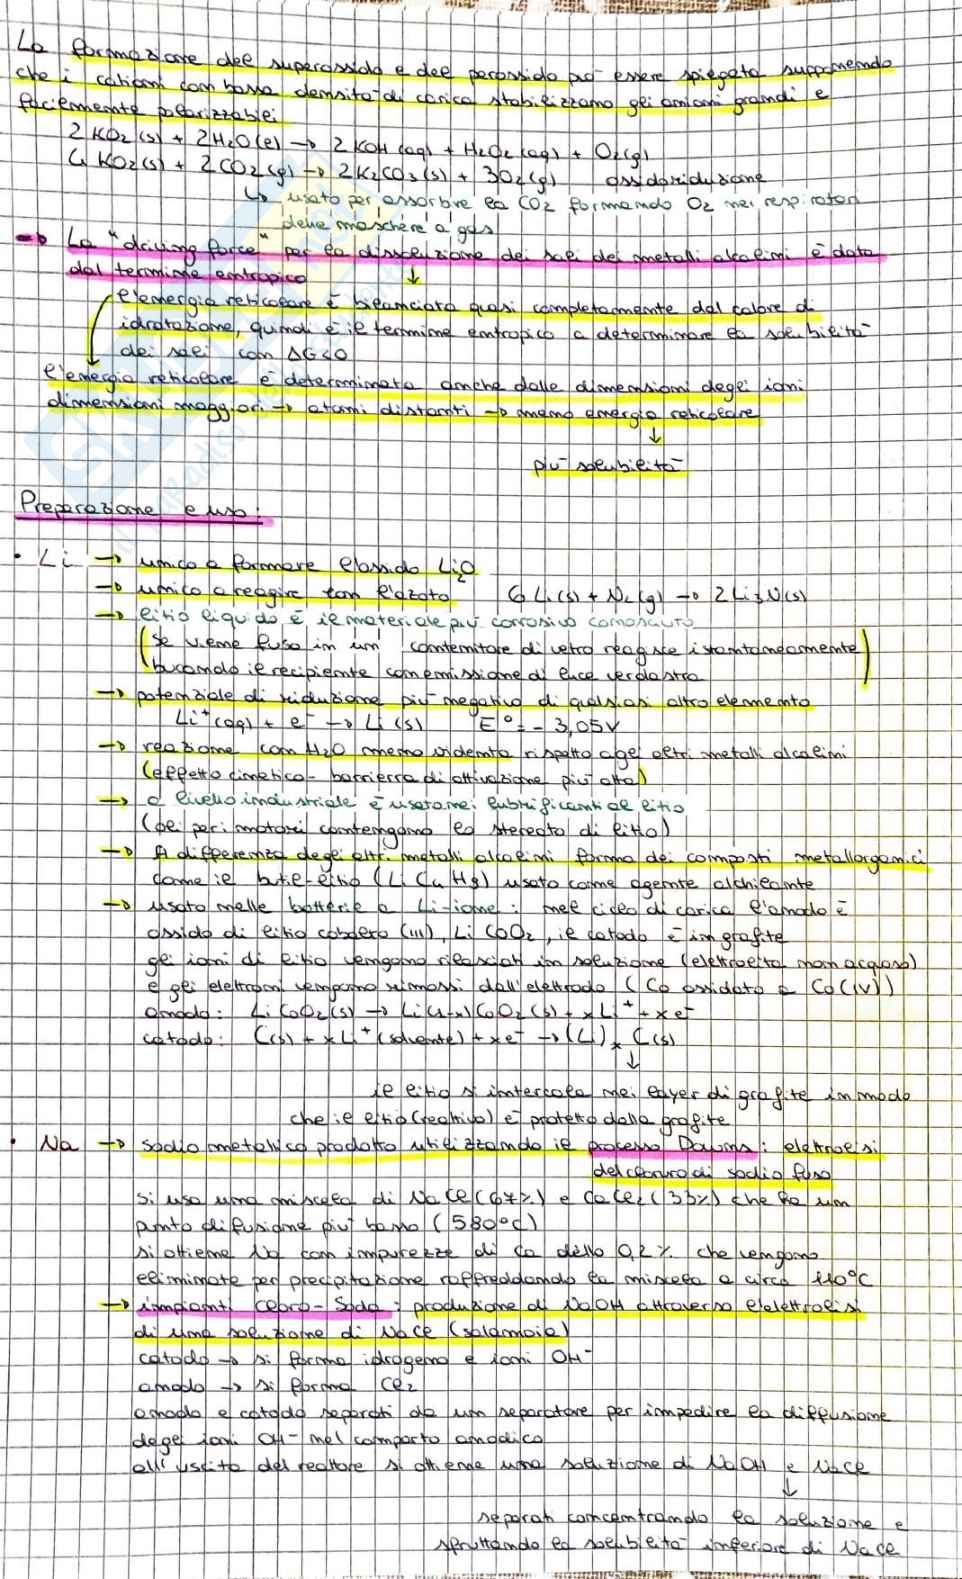 La formazione del superossido e del perossido può essere spiegata supponendo
che i cationi con bassa densità di carica stabilizzano gli anioni grandi e
facilmente polarizzabili
2 KO2(s) + 2H2O(l) → 2 KOH(aq) + H2O2(aq) + O2(g)
4 KO2(s) + 2CO2(g) → 2K2CO3(s) + 3O2(g) ossidoriduzione
↳ usato per assorbire la CO2 formando O2 nei respiratori
delle maschere a gas
→ La "driving force" per la dissoluzione dei sali dei metalli alcalini è data
dal termine entropico ↓
l'energia reticolare è bilanciata quasi completamente dal calore di
idratazione, quindi è il termine entropico a determinare la solubilità
dei sali con ΔG<0
l'energia reticolare è determinata anche dalle dimensioni degli ioni
dimensioni maggiori → atomi distanti → meno energia reticolare
↓
più solubilità
Preparazione e uso:
• Li → unico a formare l'ossido Li2O
→ unico a reagire con l'azoto 6 Li(s) + N2(g) → 2 Li3N(s)
→ litio liquido è il materiale più corrosivo conosciuto
(se viene fuso in un contenitore di vetro reagisce istantaneamente
bucando il recipiente con emissione di luce verdastra)
→ potenziale di riduzione più negativo di qualsiasi altro elemento
Li+(aq) + e- → Li(s) E° = - 3,05V
→ reazione con H2O meno violenta rispetto agli altri metalli alcalini
(effetto cinetico - barriera di attivazione più alta)
→ a livello industriale è usato nei lubrificanti al litio
(oli per i motori contengono lo stearato di litio)
→ A differenza degli altri metalli alcalini forma dei composti metallorganici
come il butil-litio (LiC4H9) usato come agente alchilante
→ usato nelle batterie a Li-ione: nel ciclo di carica l'anodo è
ossido di litio cobalto (III), LiCoO2, il catodo è in grafite
gli ioni di litio vengono rilasciati in soluzione (elettrolita non acquoso)
e gli elettroni vengono rimossi dall'elettrodo (Co ossidato a Co(IV))
anodo: LiCoO2(s) → Li(1-x)CoO2(s) + xLi+ + xe-
catodo: C(s) + xLi+(solvente) + xe- → (Li)x C(s)
↓
il litio si intercala nei layer di grafite in modo
che il litio (reattivo) è protetto dalla grafite
• Na → sodio metallico prodotto utilizzando il processo Downs: elettrolisi
del cloruro di sodio fuso
si usa una miscela di NaCl (67%) e CaCl2 (33%) che ha un
punto di fusione più basso (580°C)
si ottiene Na con impurezze di Ca dello 0,2% che vengono
eliminate per precipitazione raffreddando la miscela a circa 110°C
→ impianti Cloro-Soda: produzione di NaOH attraverso l'elettrolisi
di una soluzione di NaCl (salamoia)
catodo → si forma idrogeno e ioni OH-
anodo → si forma Cl2
anodo e catodo separati da un separatore per impedire la diffusione
degli ioni OH- nel comparto anodico
all'uscita del reattore si ottiene una soluzione di NaOH e NaCl
↓
separati concentrando la soluzione e
sfruttando la solubilità inferiore di NaCl